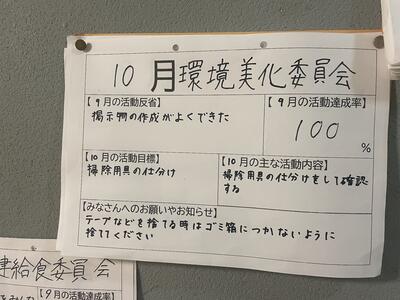 10月環境美化委員会
【9月の活動反省】
掲示物の作成がよくできた
【9月の活動達成率】
100
%
【10月の活動目標】
掃除用具の仕分け
【10月の主な活動内容】
掃除用具の仕分けをして確認
する
【みなさんへのお願いやお知らせ】
テープなどを捨てる時はゴミ箱につかないように
捨ててください
健給食委員会
【9月の活動